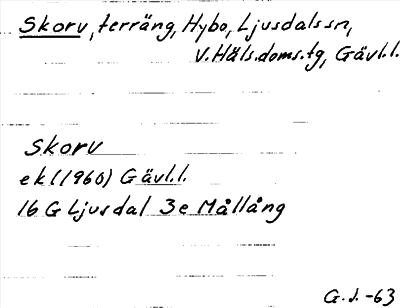 Skorv, terräng, Hybo, Ljusdals sn,
V. Häls. doms. tg, Gävl.l.
Skorv
ek (1960) Gävl.l.
16 G Ljusdal 3e Mållång
G.J. -63